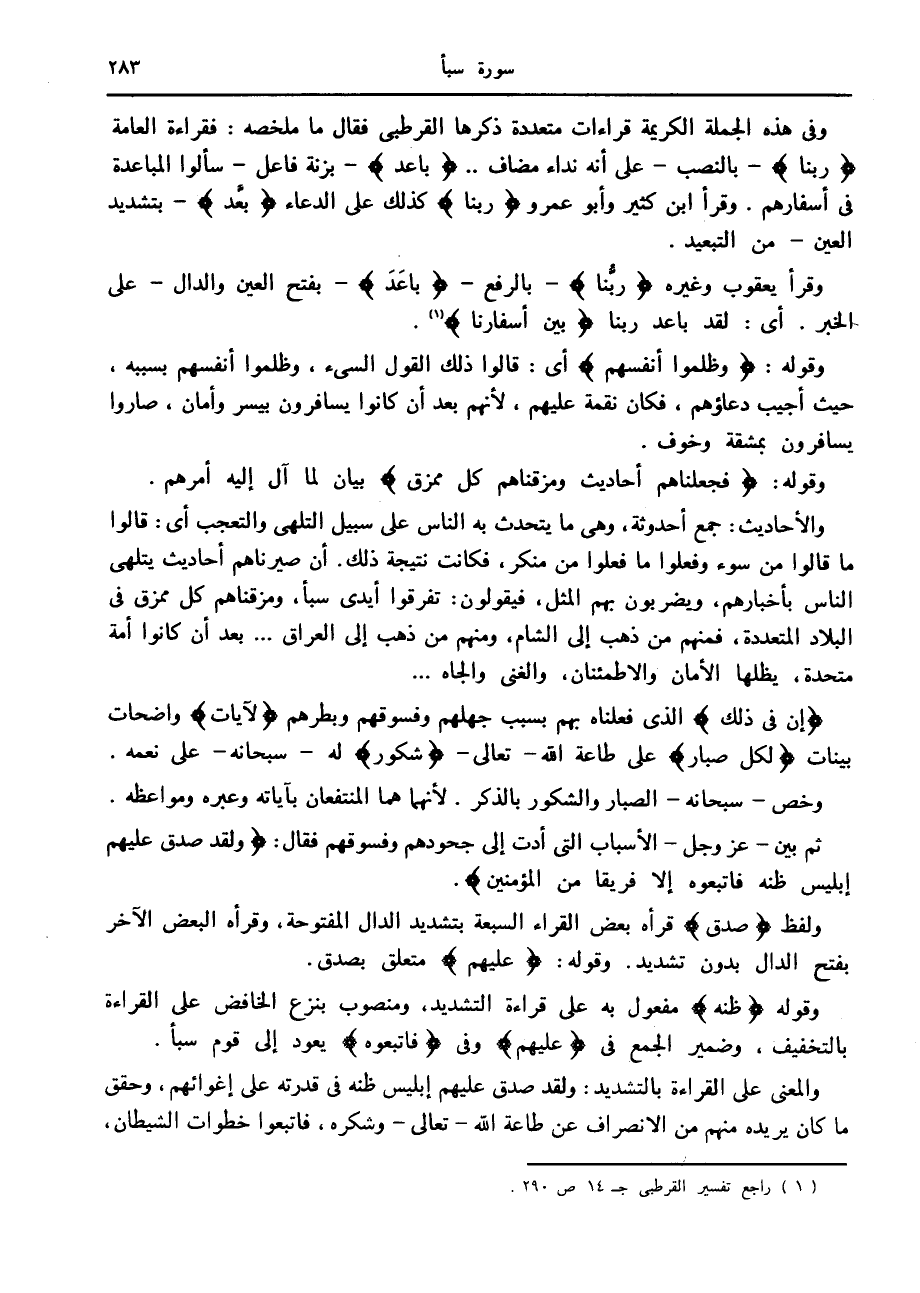 سورة سبأ
٢٨٣
وفى هذه الجملة الكريمة قراءات متعددة ذكرها القرطبى فقال ما ملخصه : فقراءة العامة
﴿ ربنا ﴾ – بالنصب – على أنه نداء مضاف .. ﴿ باعد ﴾ – بزنة فاعل – سألوا المباعدة
فى أسفارهم . وقرأ ابن كثير وأبو عمرو ﴿ ربنا ﴾ كذلك على الدعاء ﴿ بعَّد ﴾ – بتشديد
العين – من التبعيد .
وقرأ يعقوب وغيره ﴿ ربُّنا ﴾ – بالرفع – ﴿ باعَدَ ﴾ – بفتح العين والدال – على
الخبر . أى : لقد باعد ربنا ﴿ بين أسفارنا ﴾(١) .
وقوله : ﴿ وظلموا أنفسهم ﴾ أى : قالوا ذلك القول السىء ، وظلموا أنفسهم بسببه ،
حيث أجيب دعاؤهم ، فكان نقمة عليهم ، لأنهم بعد أن كانوا يسافرون بيسر وأمان ، صاروا
يسافرون بمشقة وخوف .
وقوله: ﴿ فجعلناهم أحاديث ومزقناهم كل ممزق ﴾ بيان لما آل إليه أمرهم .
والأحاديث: جمع أحدوثة، وهى ما يتحدث به الناس على سبيل التلهى والتعجب أى: قالوا
ما قالوا من سوء وفعلوا ما فعلوا من منكر، فكانت نتيجة ذلك. أن صيرناهم أحاديث يتلهى
الناس بأخبارهم، ويضربون بهم المثل، فيقولون: تفرقوا أيدى سبأ، ومزقناهم كل ممزق فى
البلاد المتعددة، فمنهم من ذهب إلى الشام، ومنهم من ذهب إلى العراق ... بعد أن كانوا أمة
متحدة، يظلها الأمان والاطمئنان، والغنى والجاه ...
﴿إن فى ذلك ﴾ الذى فعلناه بهم بسبب جهلهم وفسوقهم وبطرهم ﴿لآيات﴾ واضحات
بينات ﴿لكل صبار﴾ على طاعة الله– تعالى– ﴿شكور﴾ له – سبحانه– على نعمه .
وخص – سبحانه – الصبار والشكور بالذكر . لأنهما هما المنتفعان بآياته وعبره ومواعظه .
ثم بين– عز وجل – الأسباب التى أدت إلى جحودهم وفسوقهم فقال: ﴿ ولقد صدق عليهم
إبليس ظنه فاتبعوه إلا فريقا من المؤمنين﴾ .
ولفظ ﴿ صدق﴾ قرأه بعض القراء السبعة بتشديد الدال المفتوحة، وقرأه البعض الآخر
بفتح الدال بدون تشديد. وقوله: ﴿ عليهم ﴾ متعلق بصدق.
وقوله ﴿ظنه﴾ مفعول به على قراءة التشديد، ومنصوب بنزع الخافض على القراءة
بالتخفيف ، وضمير الجمع فى ﴿عليهم﴾ وفى ﴿فاتبعوه﴾ يعود إلى قوم سبأ .
والمعنى على القراءة بالتشديد: ولقد صدق عليهم إبليس ظنه فى قدرته على إغوائهم، وحقق
ما كان يريده منهم من الانصراف عن طاعة الله – تعالى– وشكره، فاتبعوا خطوات الشيطان،
( ١ ) راجع تفسير القرطبى جـ ١٤ ص ٢٩٠ .